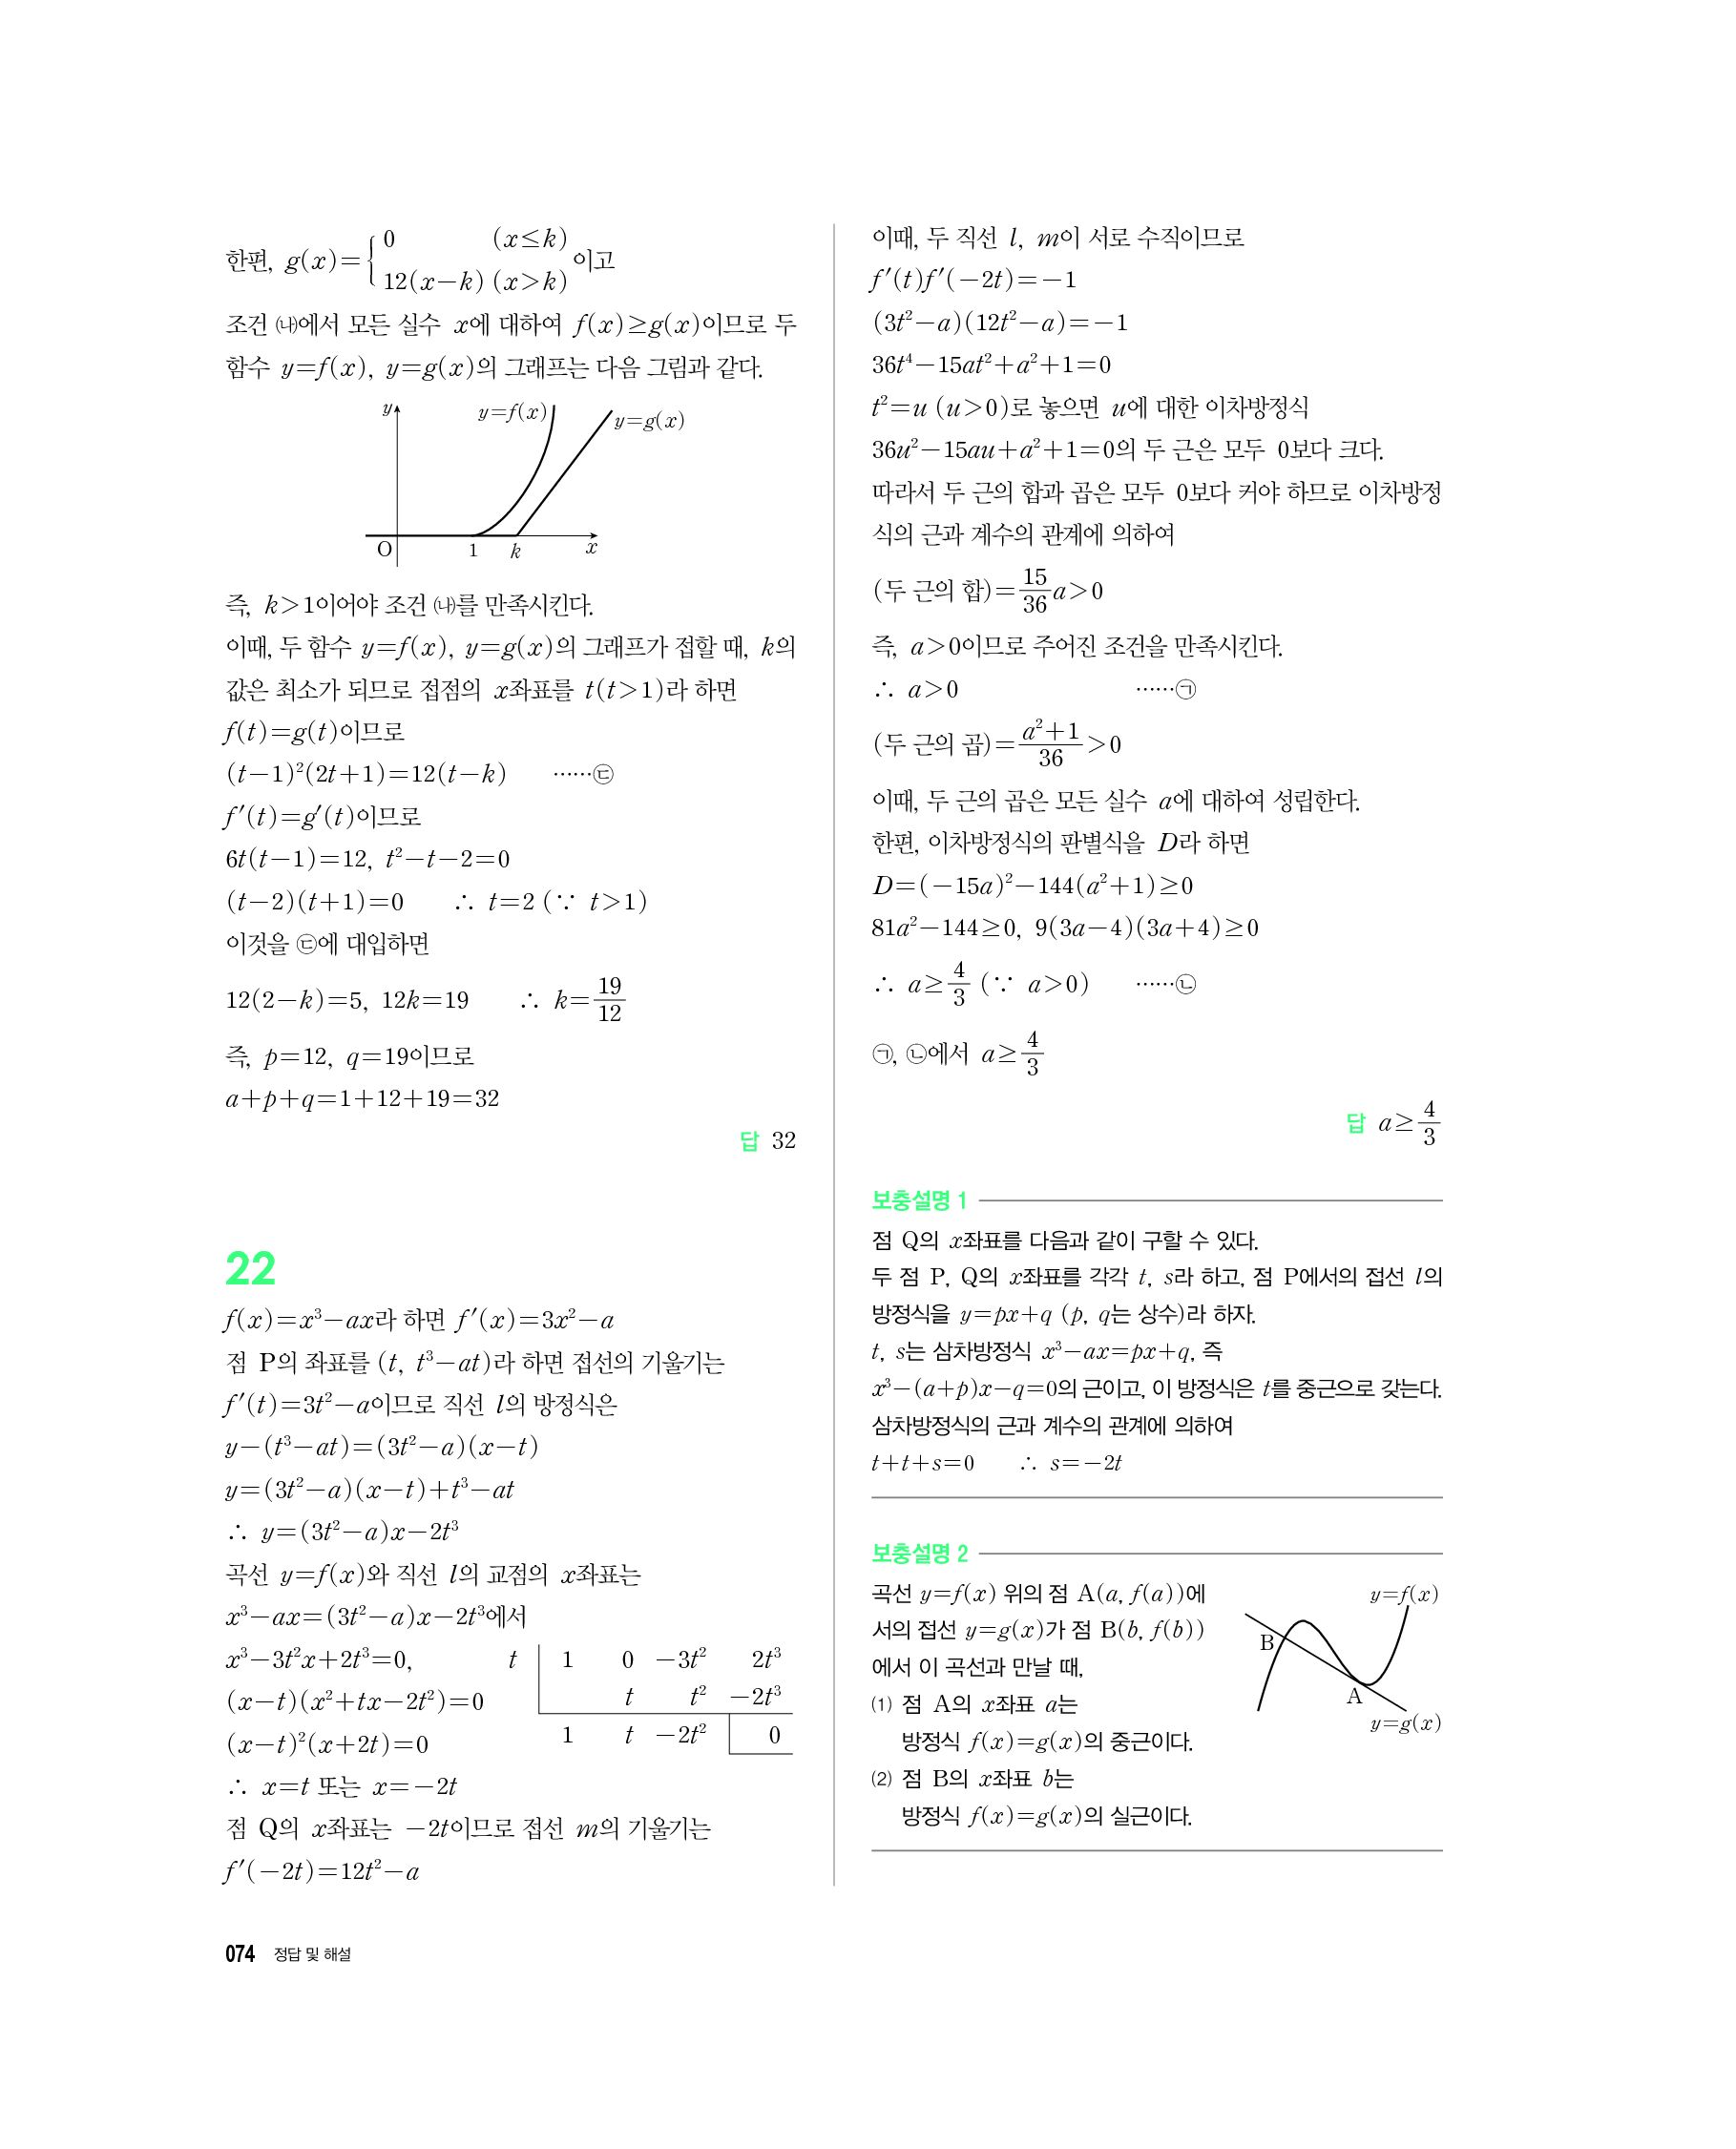 한편, g(x)={0 (x≤k)
12(x-k) (x>k) 이고
조건 ㈏에서 모든 실수 x에 대하여 f(x)≥g(x)이므로 두
함수 y=f(x), y=g(x)의 그래프는 다음 그림과 같다.
y y=f(x) y=g(x)
O 1 k x
즉, k>1이어야 조건 ㈏를 만족시킨다.
이때, 두 함수 y=f(x), y=g(x)의 그래프가 접할 때, k의
값은 최소가 되므로 접점의 x좌표를 t(t>1)라 하면
f(t)=g(t)이므로
(t-1)²(2t+1)=12(t-k) ……㉢
f′(t)=g′(t)이므로
6t(t-1)=12, t²-t-2=0
(t-2)(t+1)=0 ∴ t=2 (∵ t>1)
이것을 ㉢에 대입하면
12(2-k)=5, 12k=19 ∴ k=19/12
즉, p=12, q=19이므로
a+p+q=1+12+19=32
답 32
22
f(x)=x³-ax라 하면 f′(x)=3x²-a
점 P의 좌표를 (t, t³-at)라 하면 접선의 기울기는
f′(t)=3t²-a이므로 직선 l의 방정식은
y-(t³-at)=(3t²-a)(x-t)
y=(3t²-a)(x-t)+t³-at
∴ y=(3t²-a)x-2t³
곡선 y=f(x)와 직선 l의 교점의 x좌표는
x³-ax=(3t²-a)x-2t³에서
x³-3t²x+2t³=0, t 1 0 -3t² 2t³
(x-t)(x²+tx-2t²)=0 t t² -2t³
(x-t)²(x+2t)=0 1 t -2t² 0
∴ x=t 또는 x=-2t
점 Q의 x좌표는 -2t이므로 접선 m의 기울기는
f′(-2t)=12t²-a
이때, 두 직선 l, m이 서로 수직이므로
f′(t)f′(-2t)=-1
(3t²-a)(12t²-a)=-1
36t⁴-15at²+a²+1=0
t²=u (u>0)로 놓으면 u에 대한 이차방정식
36u²-15au+a²+1=0의 두 근은 모두 0보다 크다.
따라서 두 근의 합과 곱은 모두 0보다 커야 하므로 이차방정
식의 근과 계수의 관계에 의하여
(두 근의 합)=15/36a>0
즉, a>0이므로 주어진 조건을 만족시킨다.
∴ a>0 ……㉠
(두 근의 곱)=(a²+1)/36>0
이때, 두 근의 곱은 모든 실수 a에 대하여 성립한다.
한편, 이차방정식의 판별식을 D라 하면
D=(-15a)²-144(a²+1)≥0
81a²-144≥0, 9(3a-4)(3a+4)≥0
∴ a≥4/3 (∵ a>0) ……㉡
㉠, ㉡에서 a≥4/3
답 a≥4/3
보충설명 1
점 Q의 x좌표를 다음과 같이 구할 수 있다.
두 점 P, Q의 x좌표를 각각 t, s라 하고, 점 P에서의 접선 l의
방정식을 y=px+q (p, q는 상수)라 하자.
t, s는 삼차방정식 x³-ax=px+q, 즉
x³-(a+p)x-q=0의 근이고, 이 방정식은 t를 중근으로 갖는다.
삼차방정식의 근과 계수의 관계에 의하여
t+t+s=0 ∴ s=-2t
보충설명 2
곡선 y=f(x) 위의 점 A(a, f(a))에
서의 접선 y=g(x)가 점 B(b, f(b))
에서 이 곡선과 만날 때,
⑴ 점 A의 x좌표 a는
방정식 f(x)=g(x)의 중근이다.
⑵ 점 B의 x좌표 b는
방정식 f(x)=g(x)의 실근이다.
y=f(x)
B
A
y=g(x)
074 정답 및 해설